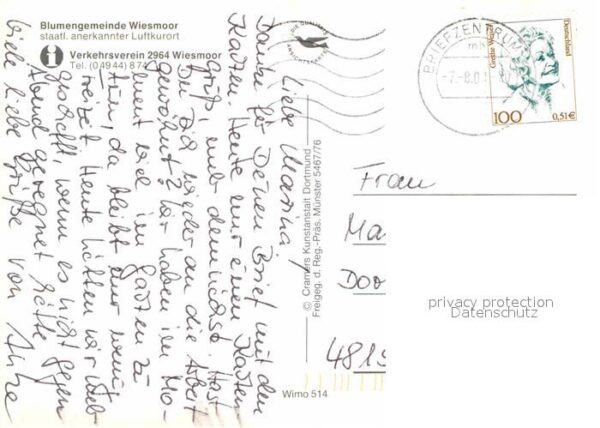 Blumengemeinde Wiesmoor
staatl. anerkannter Luftkurort
i
Verkehrsverein 2964 Wiesmoor
Tel. (0 49 44) 8 7
Liebe Marina!
Danke für Deinen Brief mit den
Karten. Heute nur einen Karten
gruß, und demnächst. Hast
Du Dich wieder an die Arbeit
gewöhnt? Wir haben im Mo-
ment viel im Garten zu
tun, da bleibt nur wenig
Freizeit. Heute hätten wir
geschafft, wenn es nicht gegen
Abend geregnet hätte.
Viele liebe Grüße von
© Cramers Kunstanstalt Dortmund
Freigeg. d. Reg.-Präs. Münster 5467/76
BRIEFZENTRUM
Deutschland
100
0,51€
Frau
Ma
Doo
4815
privacy protection
Datenschutz
Wimo 514